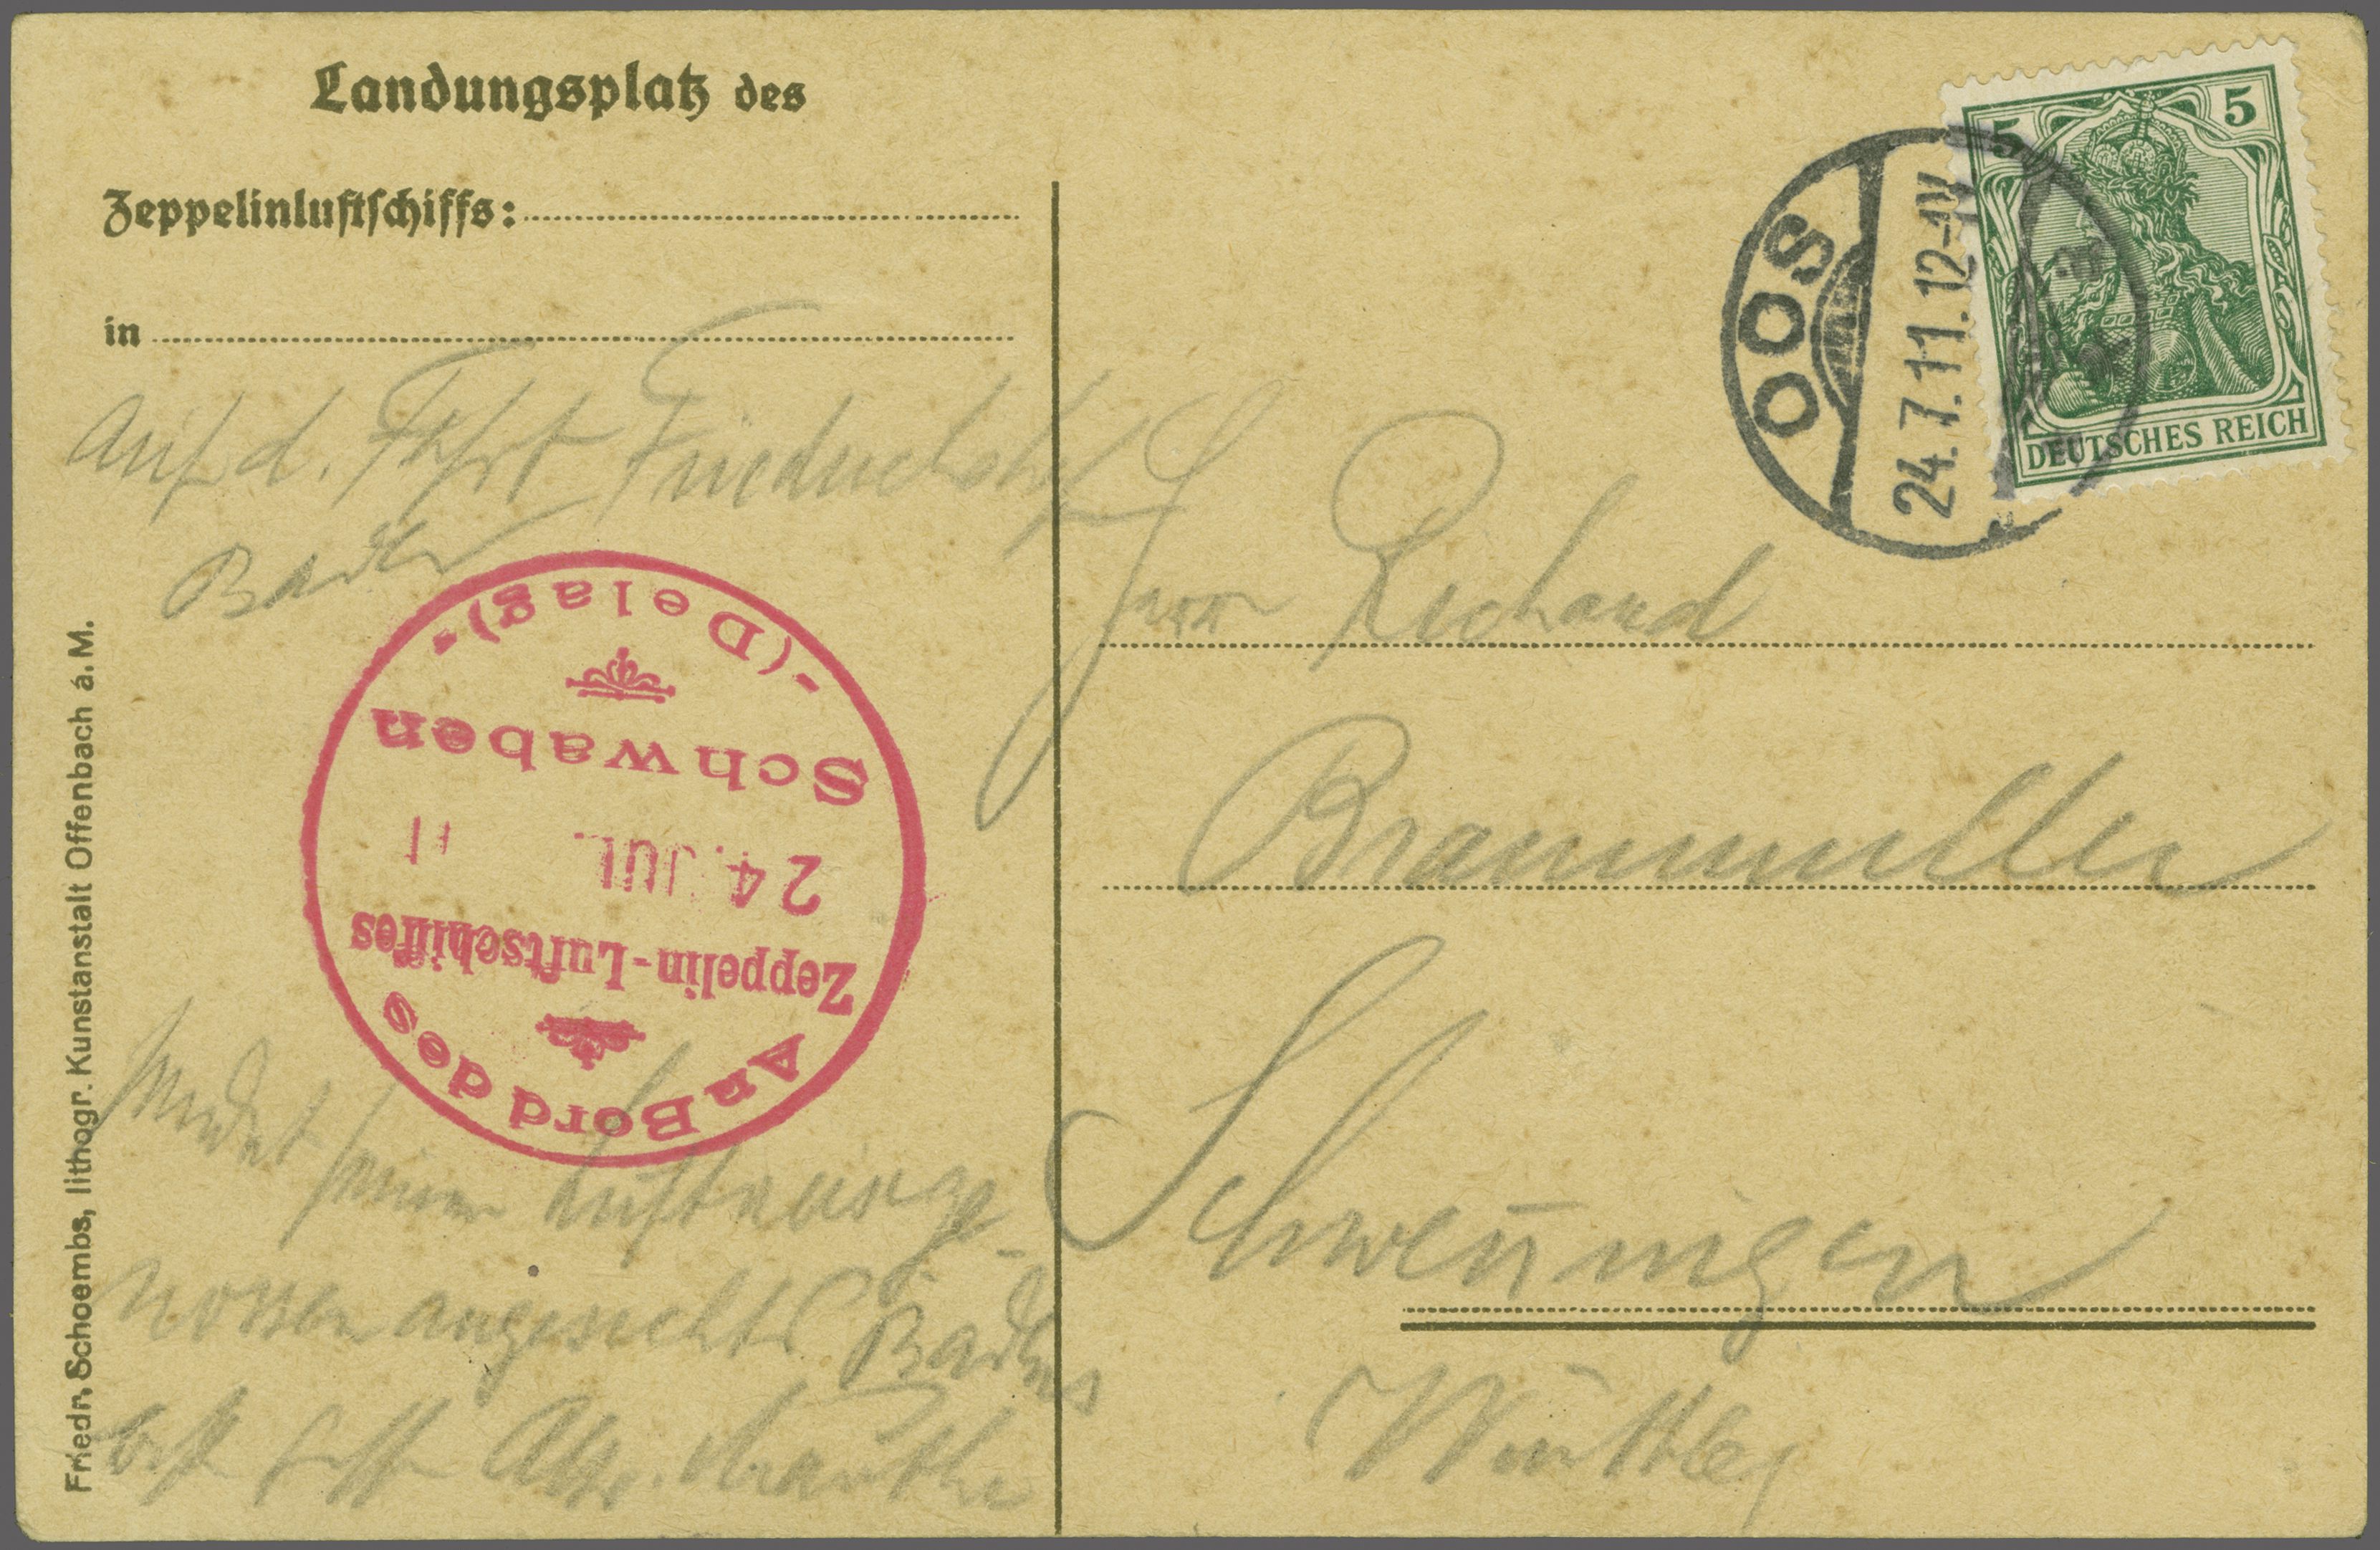 Landungsplatz des
Zeppelinluftschiffs:
in
Auf d. Fahrt Friedrichshf
Baden
An Bord des
Zeppelin-Luftschiffes
24. JUL. 11
Schwaben
-(Delag)-
sendet seinem Luftreisege-
nossen angesichts Badens
Friedr. Schoembs, lithogr. Kunstanstalt Offenbach a. M.
OOS
24.7.11.12-1N
5 5
DEUTSCHES REICH
Herrn Richard
Braunmüller
Schwenningen
Württbg